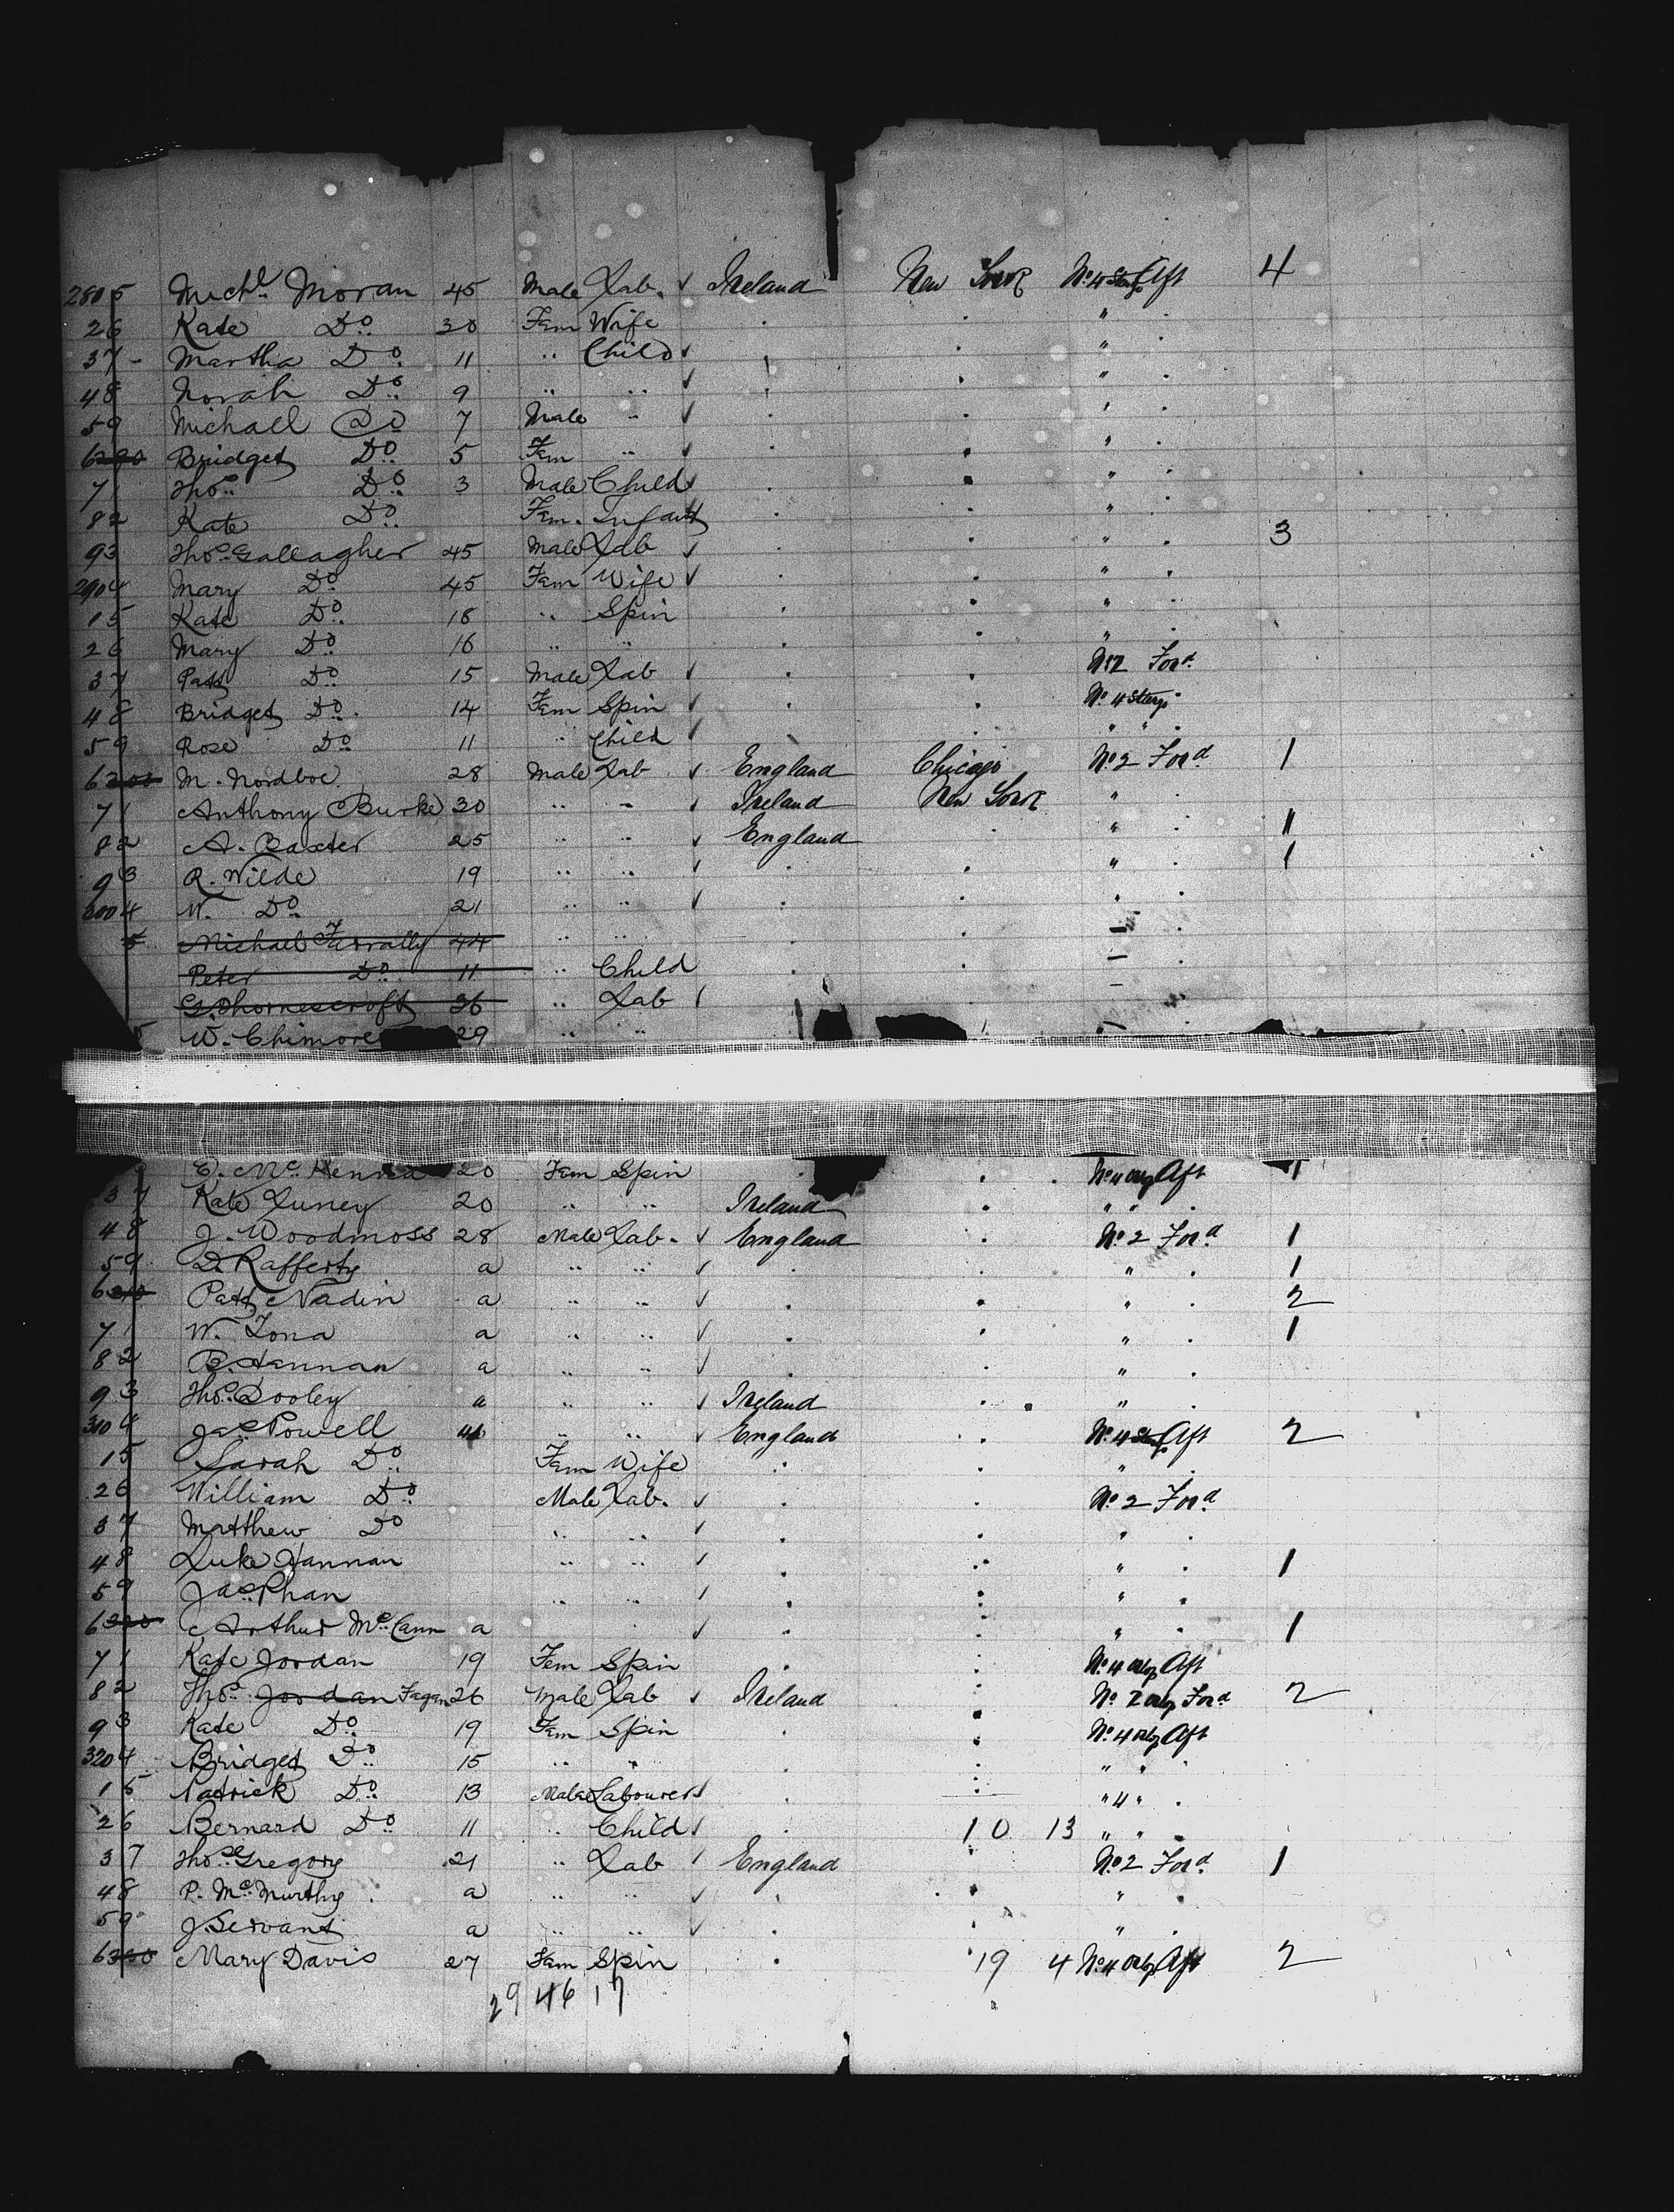 2805 Michl. Moran 45 Male Lab. ✓ Ireland New York No. 4 Stge Aft 4
26 Kate Do. 30 Fem Wife . . " .
37 - Martha Do. 11 " Child ✓ " .
48 Norah Do. 9 " " ✓ . " .
59 Michael Do 7 Male " ✓ . . " .
6290 Bridget Do. 5 Fem " ✓ . " .
7 Thos. Do. 3 Male Child ✓ . . " .
82 Kate Do. Fem. Infant . . " .
93 Thos. Gallagher 45 Male Lab ✓ . . " . 3
2904 Mary Do. 45 Fem Wife ✓ . . " .
15 Kate Do. 18 " Spin . . " .
26 Mary Do. 16 " " . . " .
37 Patt Do. 15 Male Lab ✓ . . No 2 Ford.
48 Bridget Do. 14 Fem Spin ✓ . . No. 4 Sterge
59 Rose Do. 11 " Child ✓ " " .
6300 M. Nordboe 28 Male Lab ✓ England Chicago No. 2 Ford 1
71 Anthony Burke 30 " " ✓ Ireland New York " .
82 A. Baxter 25 " " ✓ England . " . 11
93 R. Wilde 19 " " ✓ . . " . 1
3004 W. Do. 21 " " ✓ . . " .
5 Michael Farrally 44 " " . . - .
Peter Do 11 " Child . . - .
G. Thornescroft 36 " Lab ✓ -
5 W. Chimore 29 " " - .
E. McKenna 20 Fem Spin . . No. 4 Orlop Aft 1
37 Kate Luney 20 " " Ireland . " " .
48 J. Woodmoss 28 Male Lab. ✓ England . No. 2 Ford 1
59 D. Rafferty a " " ✓ . . " . 1
6310 Patt Nadin a " " ✓ . . " . 2
71 W. Tona a " " ✓ . . " . 1
82 B. Hannan a " " ✓ . . " .
93 Thos. Dooley a " " ✓ Ireland . " .
3104 Jas. Powell 41 " " ✓ England . No. 4 Stge Aft 2
15 Sarah Do. Fem Wife . . " .
26 William Do. Male Lab. ✓ . No. 2 Ford
37 Matthew Do " " ✓ . . " .
48 Luke Hannan " " ✓ . " . 1
59 Jas. Phan " " ✓ . . " .
6320 Arthur McCann a ✓ . . " . 1
71 Kate Jordan 19 Fem Spin . . No. 4 Orlop Aft
82 Thos. Jordan Fagan 26 Male Lab ✓ Ireland . No. 2 Orlop Ford 2
93 Kate Do. 19 Fem Spin . . No. 4 Orlop Aft
3204 Bridget Do. 15 " " . . " " .
15 Patrick Do. 13 Male Labourer ✓ . . " 4 " .
26 Bernard Do. 11 " Child ✓ . 10 13 " " .
37 Thos. Gregory 21 " Lab ✓ England . No. 2 Ford 1
48 P. McMurthy . a " " ✓ . . " .
59 J. Servant a " " ✓ . . " .
6330 Mary Davis 27 Fem Spin . 19 4 No. 4 Orlop Aft 2
29 46 17